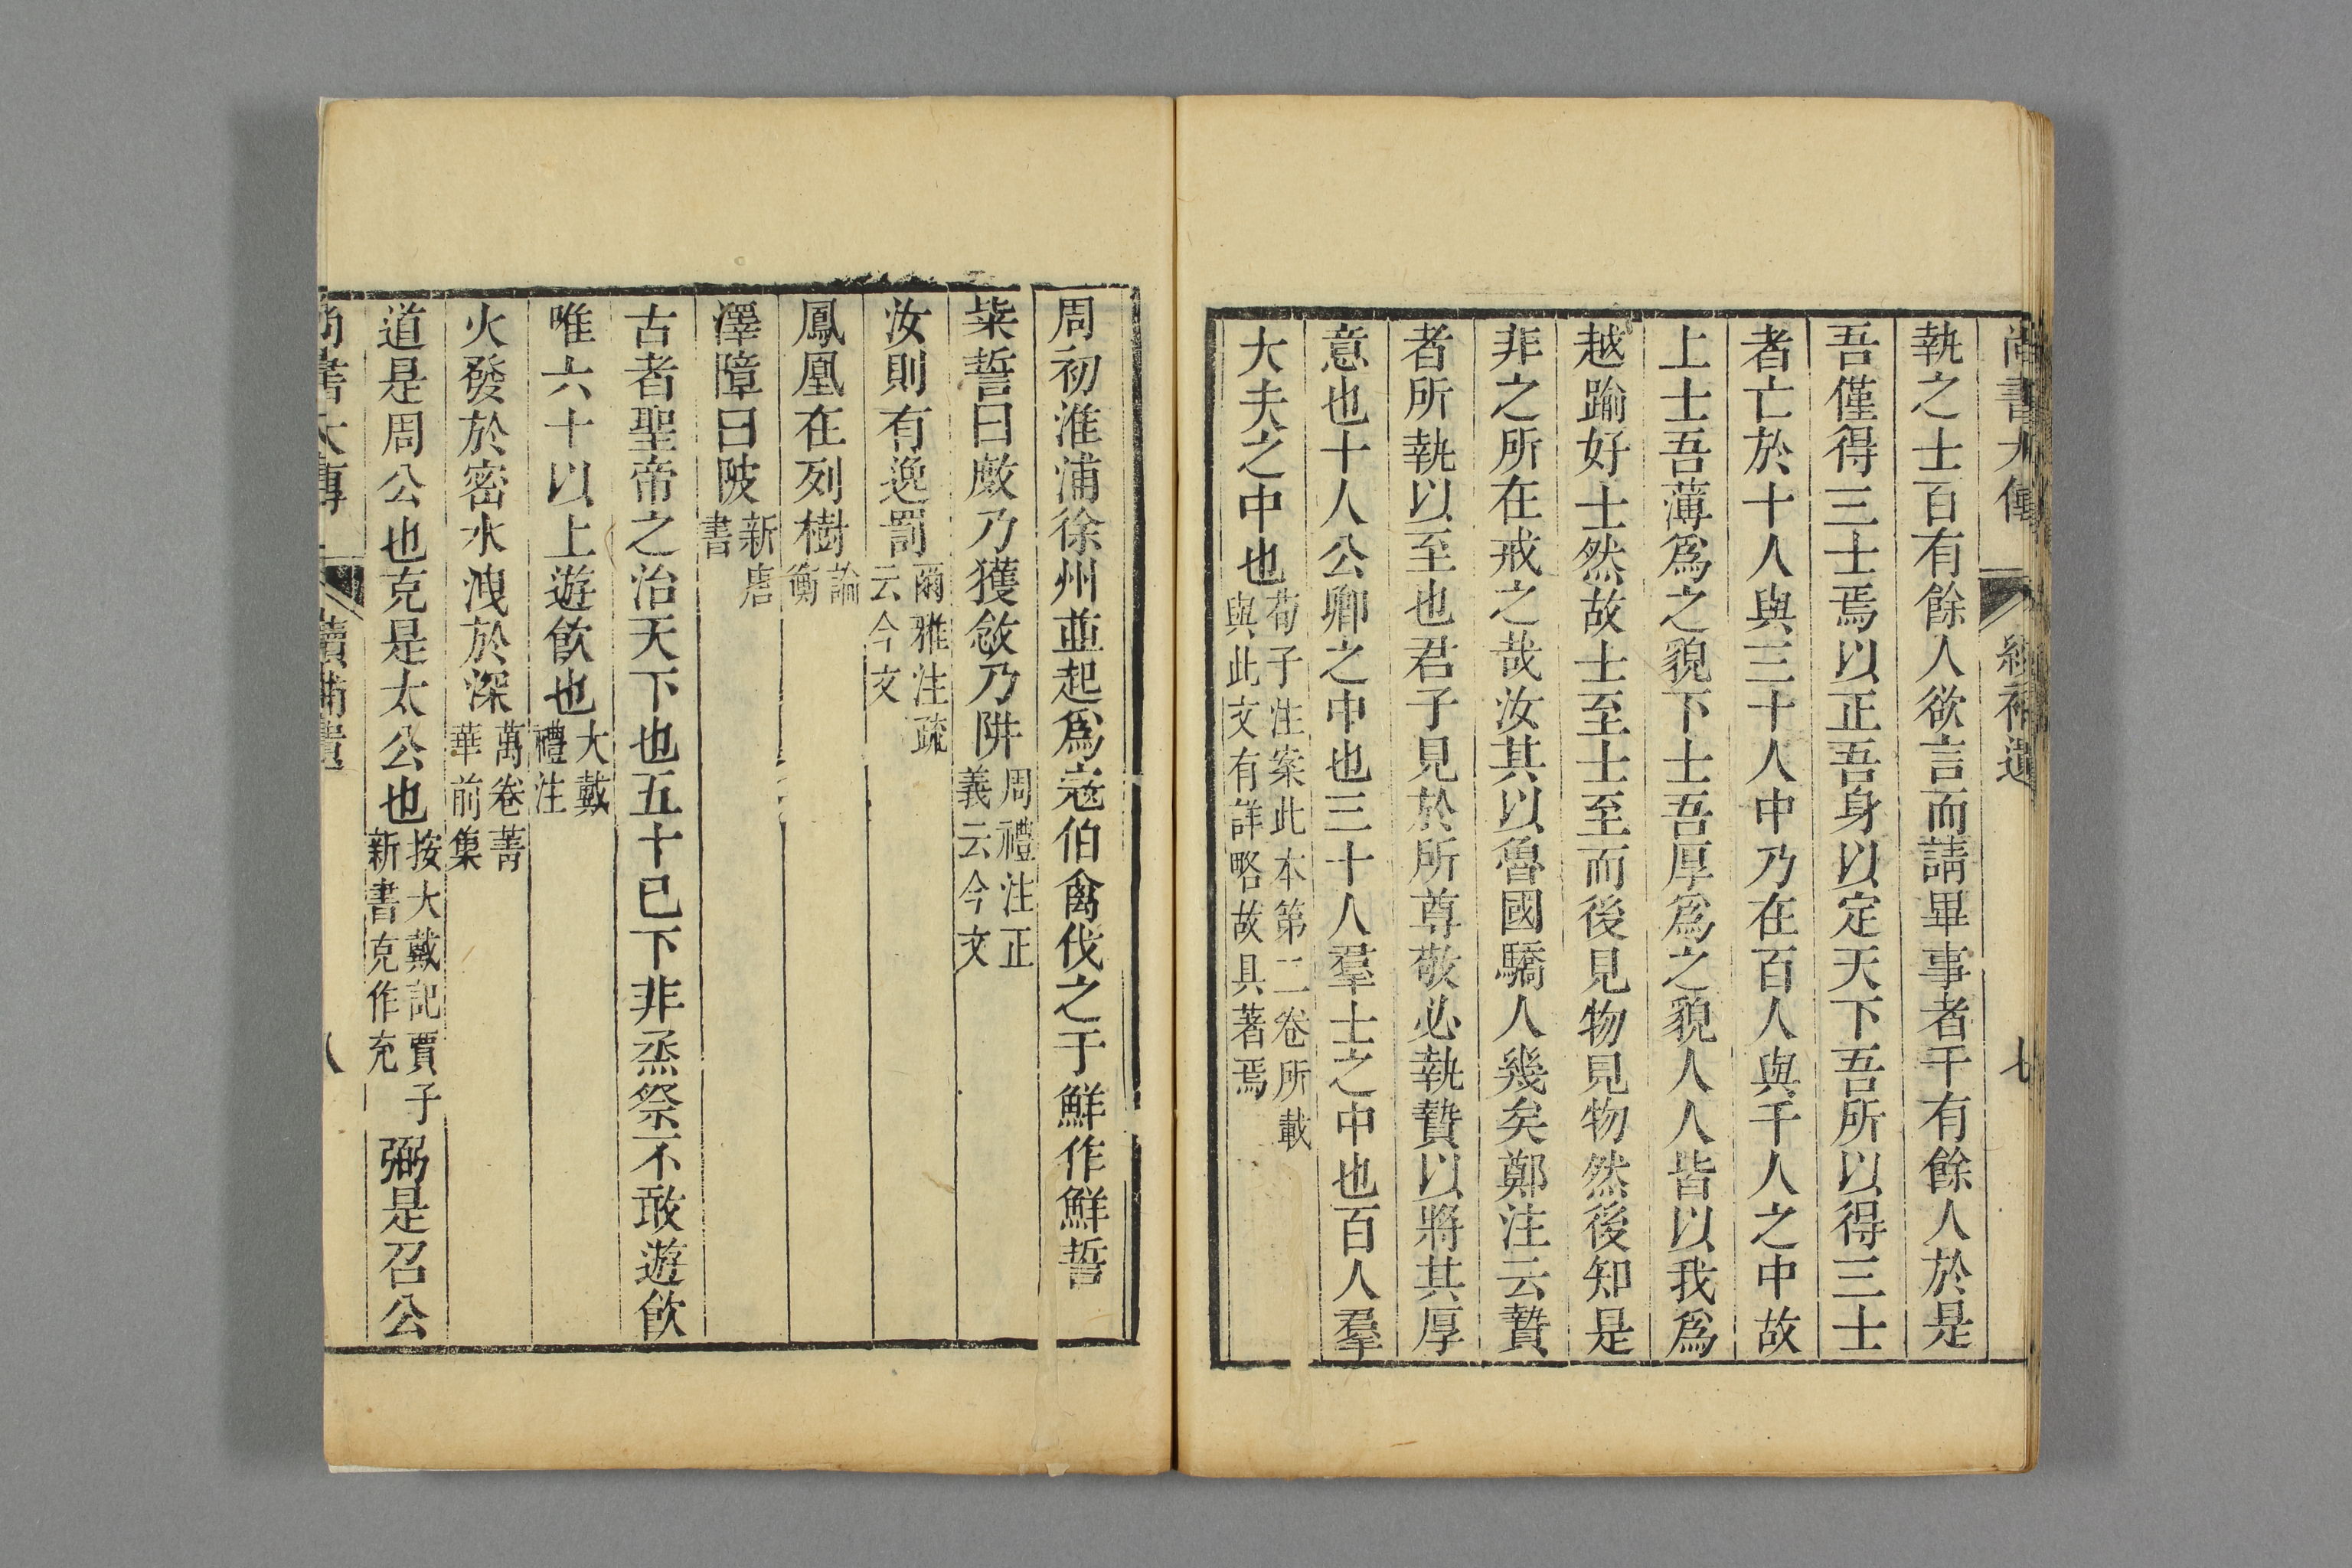 尚書大傳 續補遺 七
執之士百有餘人欲言而請畢事者千有餘人於是
吾僅得三士焉以正吾身以定天下吾所以得三士
者亡於十人與三十人中乃在百人與千人之中故
上士吾薄爲之貌下士吾厚爲之貌人人皆以我爲
越踰好士然故士至士至而後見物見物然後知是
非之所在戒之哉汝其以魯國驕人幾矣鄭注云贄
者所執以至也君子見於所尊敬必執贄以將其厚
意也十人公卿之中也三十人羣士之中也百人羣
大夫之中也荀子注案此本第二卷所載與此文有詳略故具著焉
周初淮浦徐州並起爲寇伯禽伐之于鮮作鮮誓
粊誓曰敜乃獲敛乃阱周禮注正義云今文
汝則有逸罰爾雅注疏云今文
鳳凰在列樹論衡
澤障曰陂新唐書
古者聖帝之治天下也五十已下非烝祭不敢遊飲
唯六十以上遊飲也大戴禮注
火發於密水洩於深萬卷菁華前集
道是周公也克是太公也按大戴記賈子新書克作充弼是召公
尚書大傳 續補遺 八